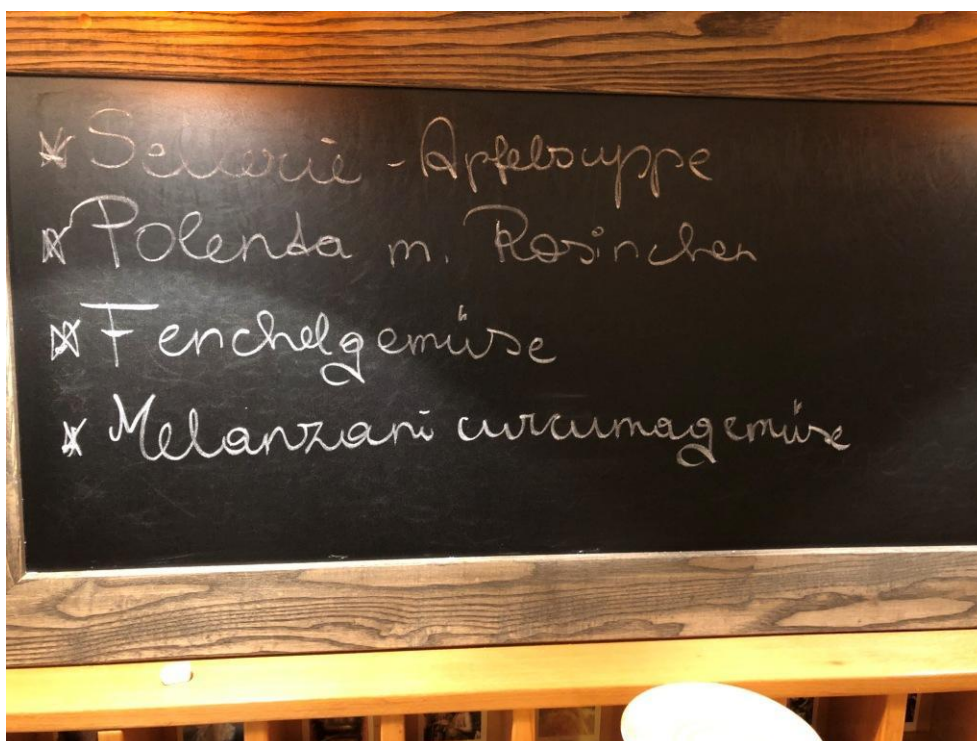 * Sellerie - Apfelsuppe
* Polenta m. Rosinchen
* Fenchelgemüse
* Melanzani curcumagemüse